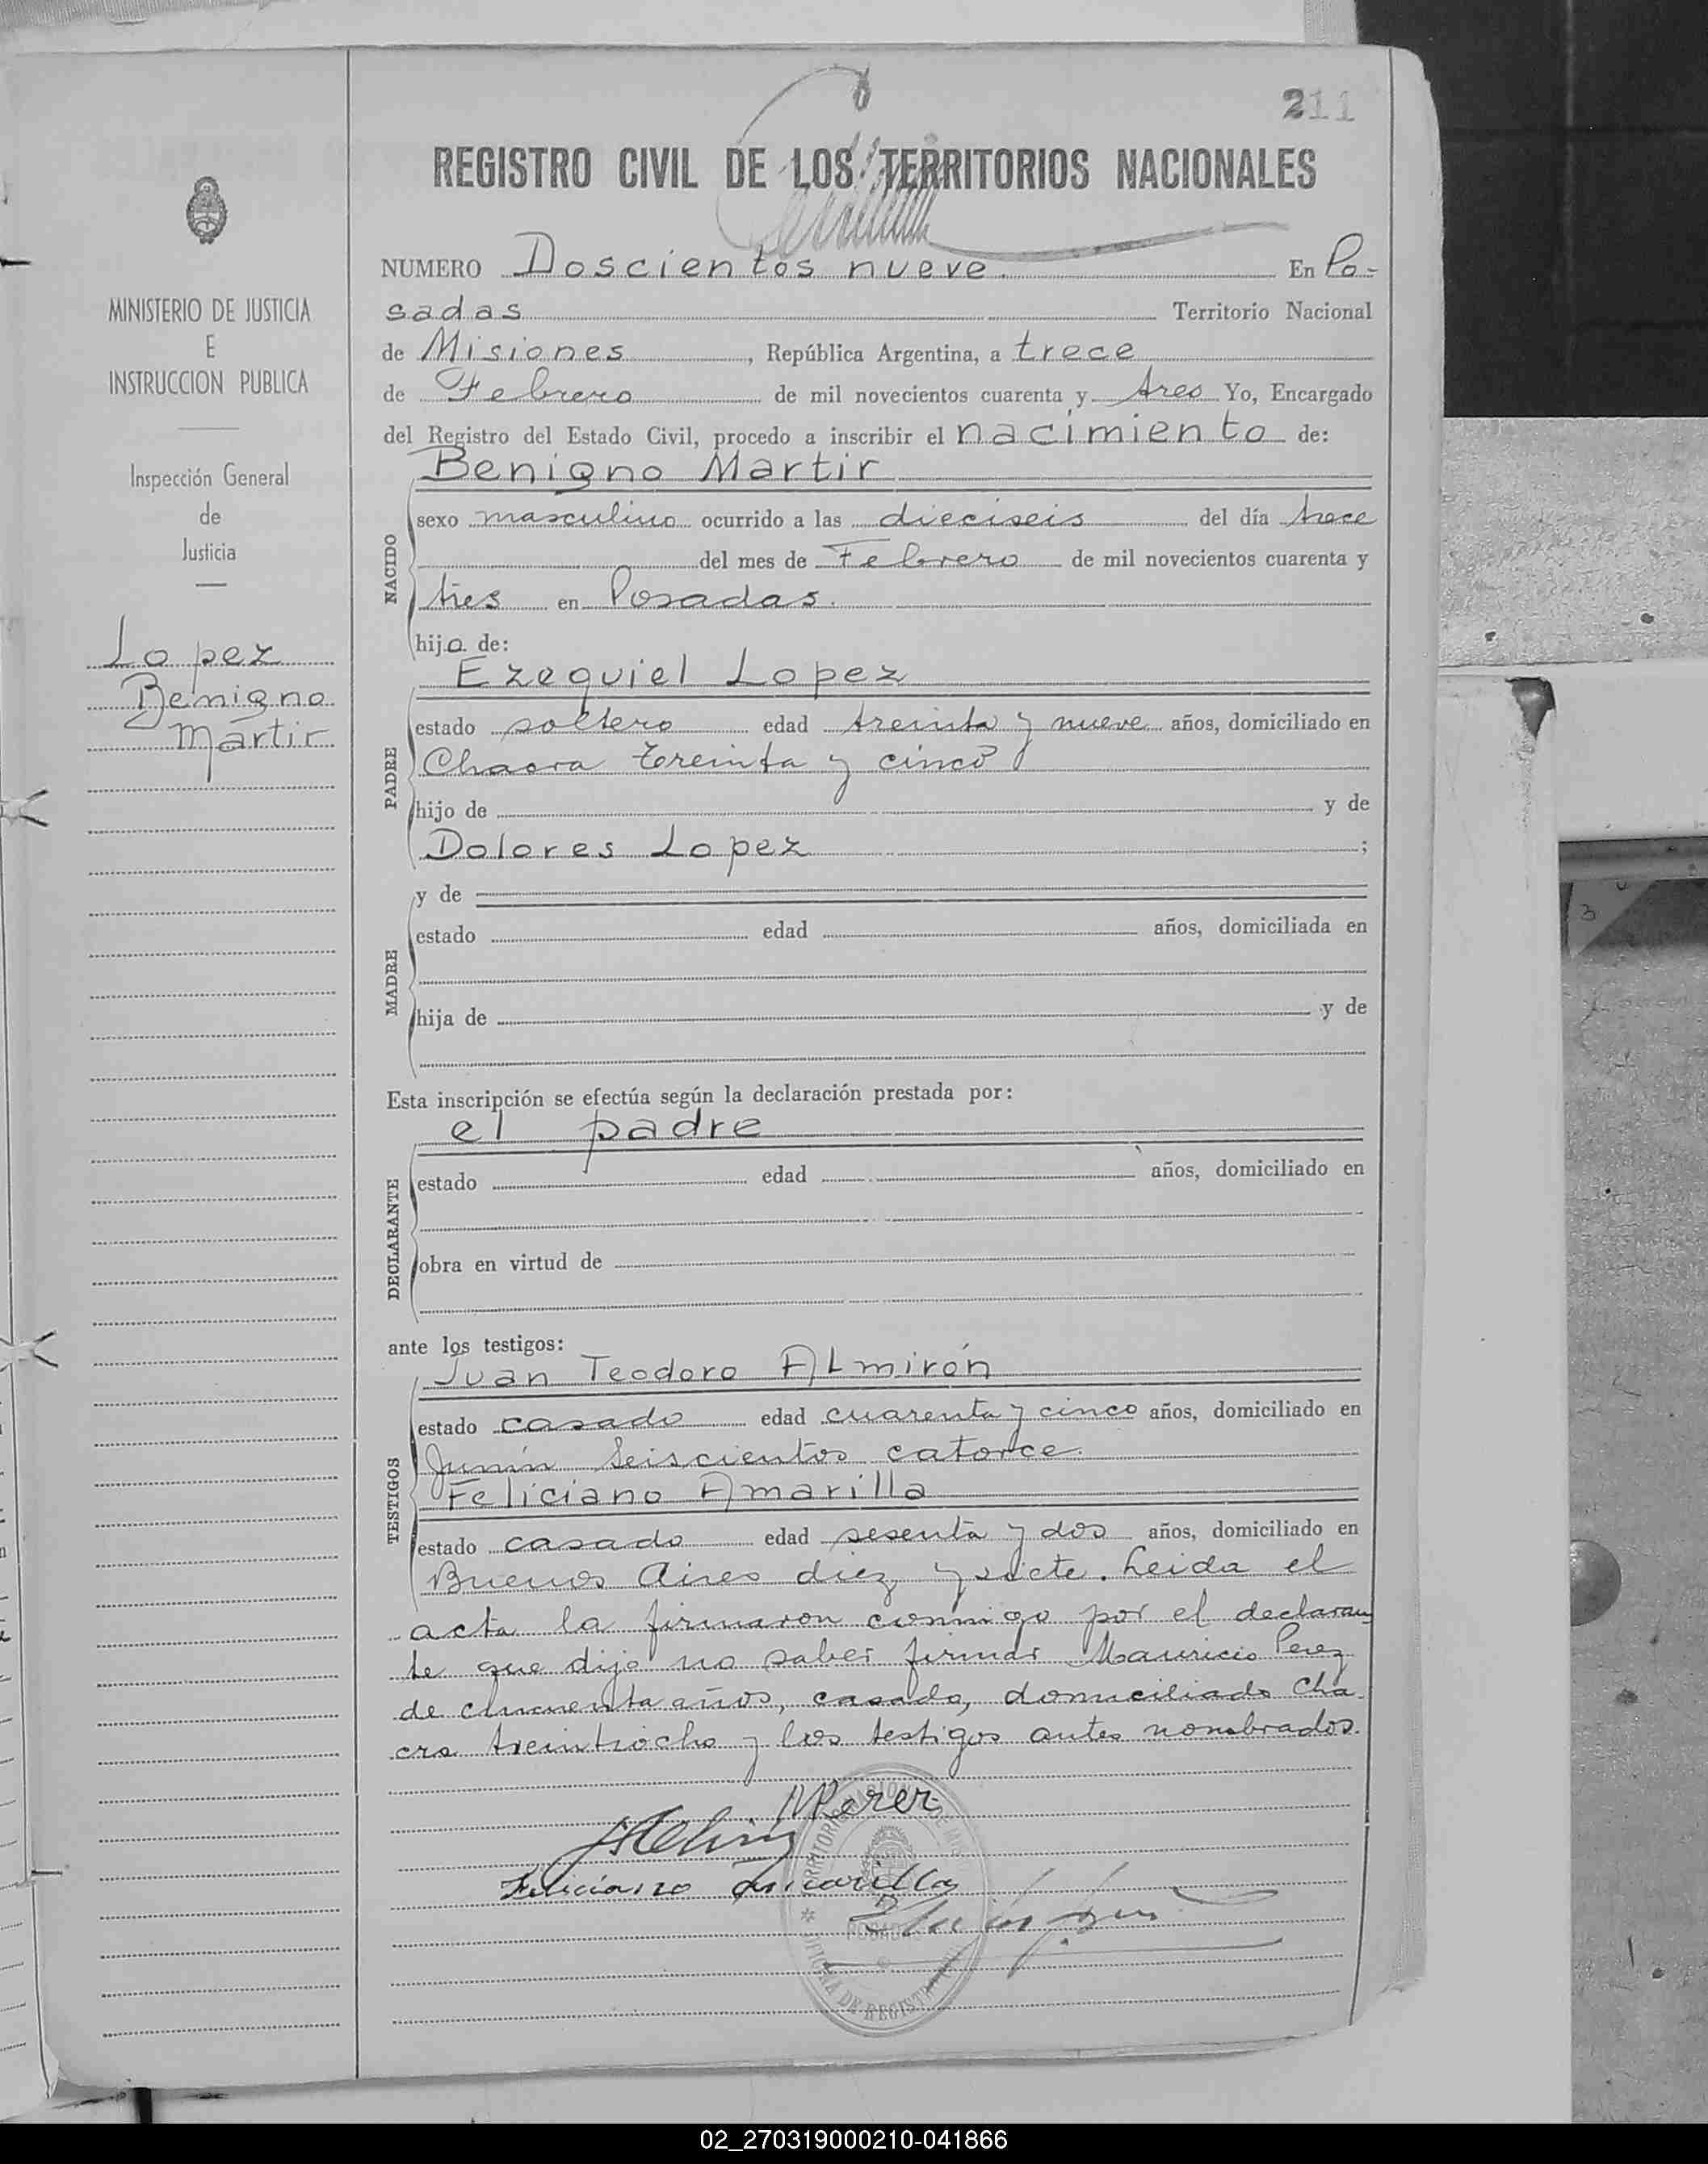 211
REGISTRO CIVIL DE LOS TERRITORIOS NACIONALES
MINISTERIO DE JUSTICIA
E
INSTRUCCION PUBLICA
Inspección General
de
Justicia
Lopez
Benigno
Martir
NUMERO Doscientos nueve. En Po-
sadas Territorio Nacional
de Misiones, República Argentina, a trece
de Febrero de mil novecientos cuarenta y tres Yo, Encargado
del Registro del Estado Civil, procedo a inscribir el nacimiento de:
Benigno Martir
NACIDO
sexo masculino ocurrido a las dieciseis del día trece
del mes de Febrero de mil novecientos cuarenta y
tres en Posadas.
hijo de:
Ezequiel Lopez
PADRE
estado soltero edad treinta y nueve años, domiciliado en
Chacra treinta y cinco
hijo de y de
Dolores Lopez ;
MADRE
y de
estado edad años, domiciliada en
hija de y de
Esta inscripción se efectúa según la declaración prestada por:
el padre
DECLARANTE
estado edad años, domiciliado en
obra en virtud de
ante los testigos:
Juan Teodoro ALmirón
TESTIGOS
estado casado edad cuarenta y cinco años, domiciliado en
Junín Seiscientos catorce.
Feliciano Amarilla
estado casado edad sesenta y dos años, domiciliado en
Buenos Aires diez y siete. Leida el
acta la firmaron conmigo por el declaran
te que dijo no saber firmar Mauricio Perez
de cincuenta años, casado, domiciliado Cha
cra treintiocho y los testigos antes nombrados.
MPerez
Feliciano Amarilla
POSADAS
OFICINA DE REGISTRO
02_270319000210-041866